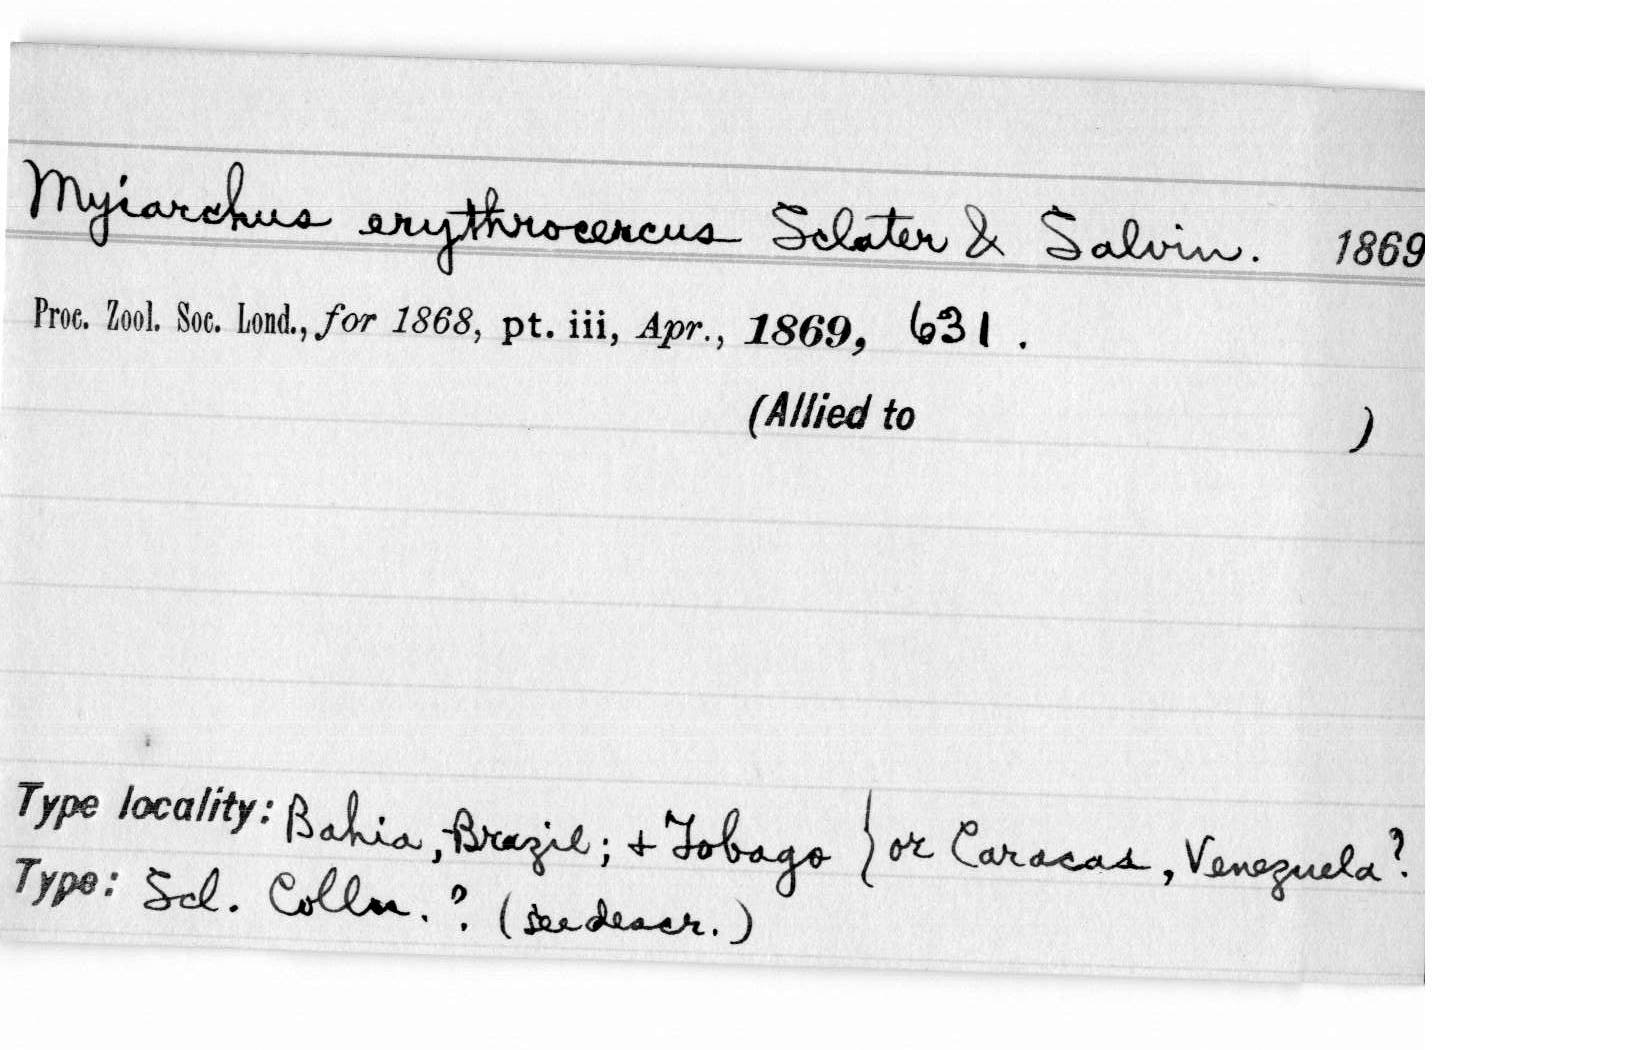 Myiarchus erythrocercus Sclater & Salvin. 1869
Proc. Zool. Soc. Lond., for 1868, pt. iii, Apr., 1869, 631.
(Allied to )
Type locality: Bahia, Brazil; + Tobago } or Caracas, Venezuela?
Type: Scl. Colln.? (see descr.)